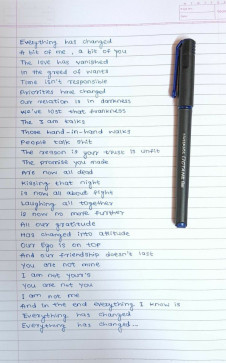 Everything has changed
A bit of me, a bit of you
The love has vanished
In the greed of wants
Time isn't responsible
Priorities have changed
Our relation is in darkness
We've lost that frankness
The I am talks
Those hand-in-hand walks
People talk shit
The reason is your trust is unfit
The promise you made
Are now all dead
Kissing that night
Is now all about fight
Laughing all together
Is now no more further
All our gratitude
Has changed into attitude
Our Ego is on top
And our friendship doesn't last
You are not mine
I am not your's
You are not you
I am not me
And in the end everything I know is
Everything has changed
Everything has changed...